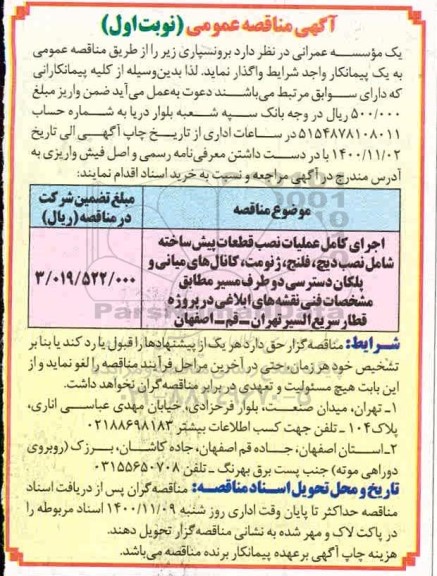 آگهی مناقصه عمومی (نوبت اول)
یک مؤسسه عمرانی در نظر دارد برونسپاری زیر را از طریق مناقصه عمومی
به یک پیمانکار واجد شرایط واگذار نماید. لذا بدین‌وسیله از کلیه پیمانکارانی
که دارای سوابق مرتبط می‌باشند دعوت به‌عمل می‌آید ضمن واریز مبلغ
۵۰۰/۰۰۰ ریال در وجه بانک سپه شعبه بلوار دریا به شماره حساب
۵۱۵۴۸۷۸۱۰۸۰۱۱ در ساعات اداری از تاریخ چاپ آگهی الی تاریخ
۱۴۰۰/۱۱/۰۲ با در دست داشتن معرفی‌نامه رسمی و اصل فیش واریزی به
آدرس مندرج در آگهی مراجعه و نسبت به خرید اسناد اقدام نمایند:
موضوع مناقصه
مبلغ تضمین شرکت
در مناقصه (ریال)
اجرای کامل عملیات نصب قطعات پیش‌ساخته
شامل نصب دیچ، فلنج، ژئومت، کانال‌های میانی و
پلکان دسترسی دو طرف مسیر مطابق
مشخصات فنی نقشه‌های ابلاغی در پروژه
قطار سریع‌السیر تهران ــ قم ــ اصفهان
۳/۰۱۹/۵۲۲/۰۰۰
شرایط: مناقصه‌گزار حق دارد هر یک از پیشنهادها را قبول یا رد کند یا بنا بر
تشخیص خود هر زمان، حتی در آخرین مراحل فرآیند مناقصه را لغو نماید و از
این بابت هیچ مسئولیت و تعهدی در برابر مناقصه‌گران نخواهد داشت.
۱ـ تهران، میدان صنعت، بلوار فرحزادی، خیابان مهدی عباسی اناری،
پلاک ۱۰۴ ـ تلفن جهت کسب اطلاعات بیشتر ۰۲۱۸۸۶۹۸۱۸۳
۲ـ استان اصفهان، جاده قم اصفهان، جاده کاشان، برزک (روبروی
دوراهی موته) جنب پست برق بهرنگ ـ تلفن ۰۳۱۵۵۶۵۰۷۰۸
تاریخ و محل تحویل اسناد مناقصه: مناقصه‌گران پس از دریافت اسناد
مناقصه حداکثر تا پایان وقت اداری روز شنبه ۱۴۰۰/۱۱/۰۹ اسناد مربوطه را
در پاکت لاک و مهر شده به نشانی مناقصه‌گزار تحویل دهند.
هزینه چاپ آگهی بر عهده پیمانکار برنده مناقصه می‌باشد.